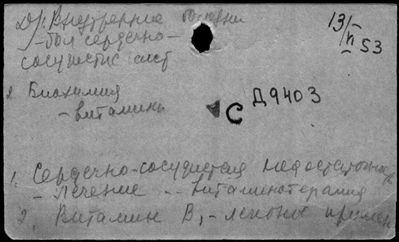 Внутренние болезни
13/II 53
- бол сердечно-
сосудистые сист
2. Биохимия
- витамины
С Д9403
1. Сердечно-сосудистая недостаточность
- Лечение -- витаминотерапия
2. Витамин В₁ -